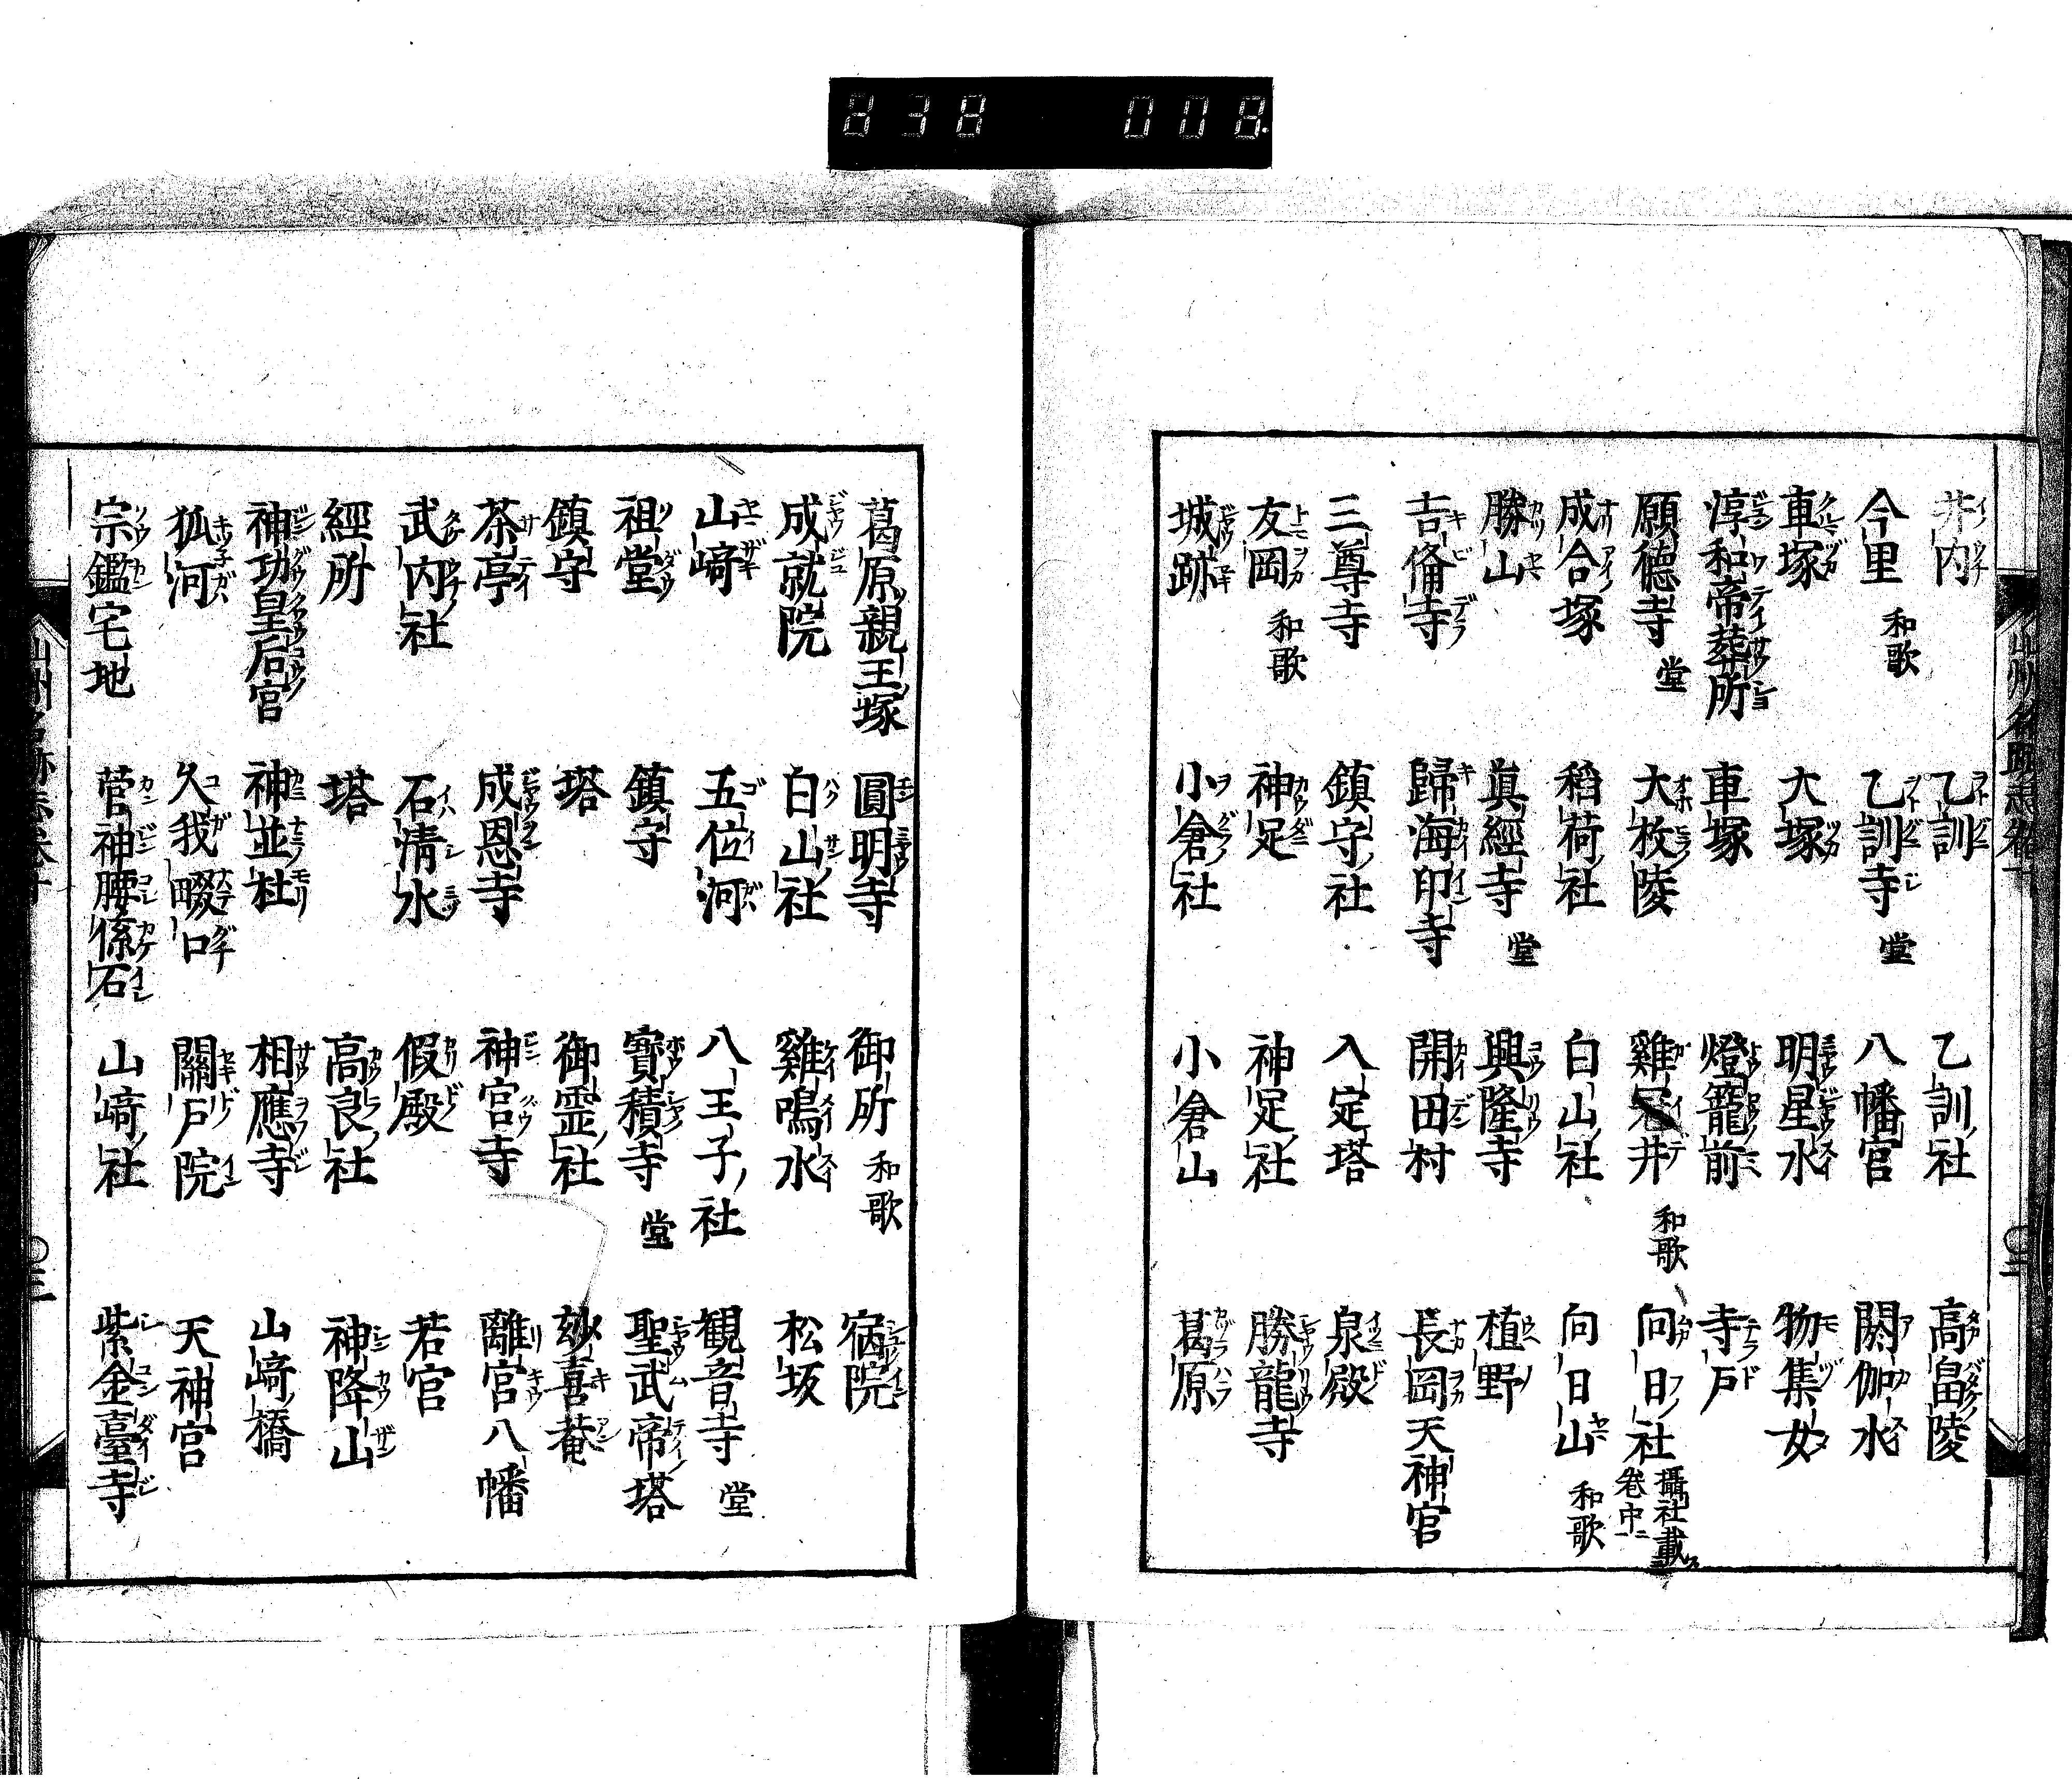 838 008
井内 乙訓 乙訓ノ社 高畠陵
今里 和歌 乙訓寺 堂 八幡宮 閼伽水
車塚 大塚 明星水 物集女
淳和帝葬所 車塚 燈籠前 寺戸
願德寺 堂 大枚陵 雞冠井 和歌 向日ノ社 攝社載ス卷中ニ
成合塚 稻荷ノ社 白山ノ社 向日山 和歌
勝山 眞經寺 堂 興隆寺 植野
吉備寺 歸海印寺 開田村 長岡天神宮
三尊寺 鎮守ノ社 入定塔 泉殿
友岡 和歌 神足 神足ノ社 勝龍寺
城跡 小倉ノ社 小倉山 葛原
葛原親王塚 圓明寺 御所 和歌 宿院
成就院 白山ノ社 雞鳴水 松坂
山﨑 五位河 八王子ノ社 観音寺 堂
祖堂 鎮守 寳積寺 堂 聖武帝塔
鎮守 塔 御霊ノ社 妙喜菴
茶亭 成恩寺 神宮寺 離宮八幡
武内社 石清水 假殿 若宮
經所 塔 高良ノ社 神降山
神功皇后宮 神並杜 相應寺 山﨑ノ橋
狐河 久我畷口 關戸院 天神宮
宗鑑宅地 菅神腰係石 山﨑ノ社 紫金臺寺